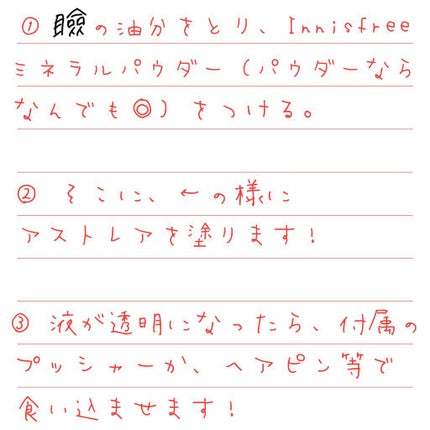 ① 瞼の油分をとり、Innisfree
ミネラルパウダー(パウダーなら
なんでも◎)をつける。
② そこに、←の様に
アストレアを塗ります!
③ 液が透明になったら、付属の
プッシャーか、ヘアピン等で
食い込ませます!